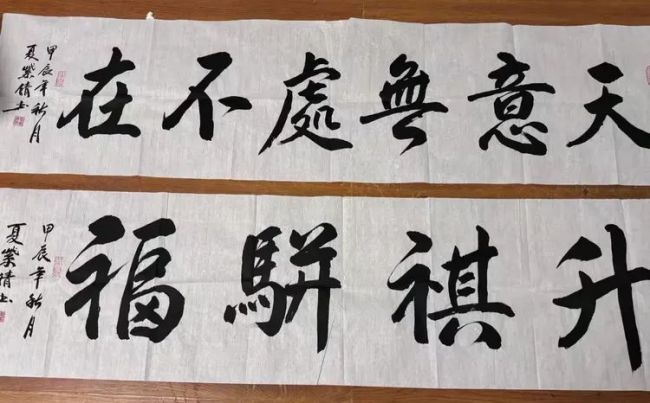 天意無處不在
甲辰年秋月
夏紫倩书
升祺駢福
甲辰年秋月
夏紫倩书